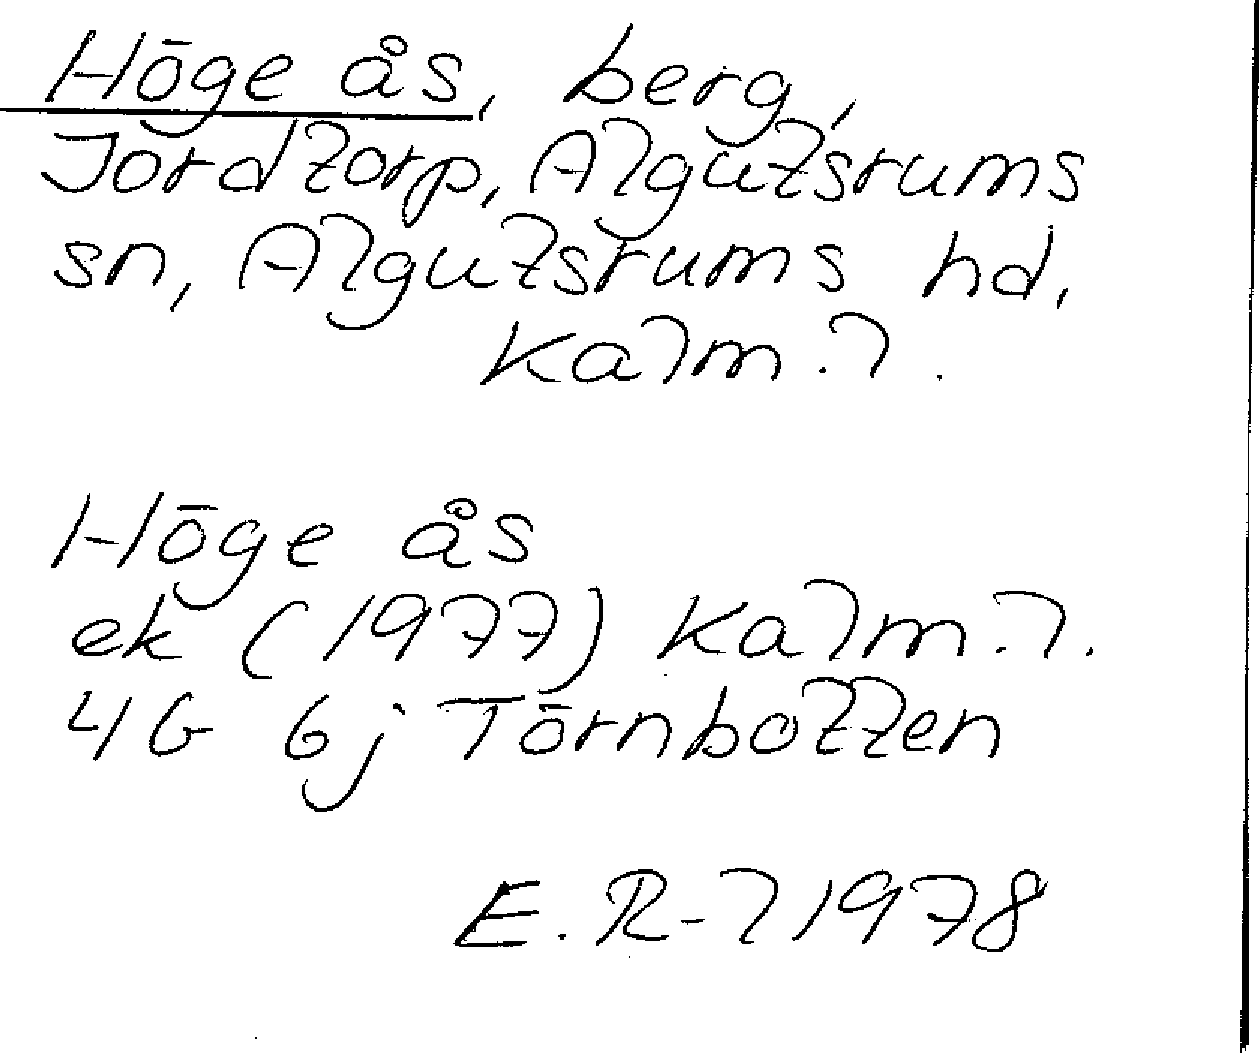 Höge ås, berg,
Jordtorp, Algutsrums
sn, Algutsrums hd,
Kalm.l.
Höge ås
ek (1977) Kalm.l.
4G 6j Törnbotten
E.R-l 1978